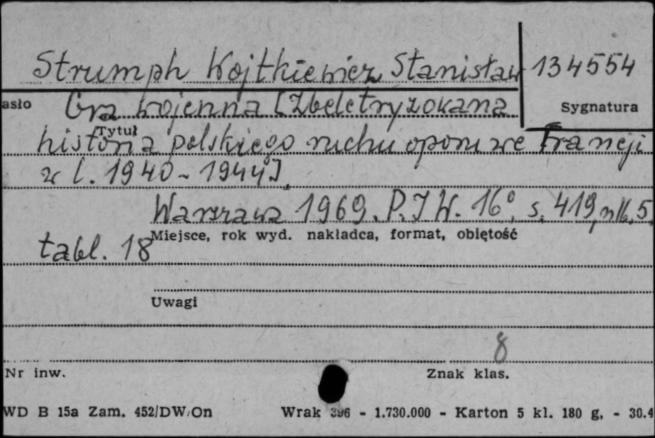 Strumph Wojtkiewicz Stanisław
134554
asło
Gra wojenna [Zbeletryzowana
Sygnatura
Tytuł
historia polskiego ruchu oporu we Francji
w l. 1940-1944],
Warszawa 1969. P.I.W. 16°, s. 419, nlb. 5,
tabl. 18
Miejsce, rok wyd. nakładca, format, objętość
Uwagi
8
Nr inw.
Znak klas.
WD B 15a Zam. 452/DW/On
Wrak 396 - 1.730.000 - Karton 5 kl. 180 g, - 30.4